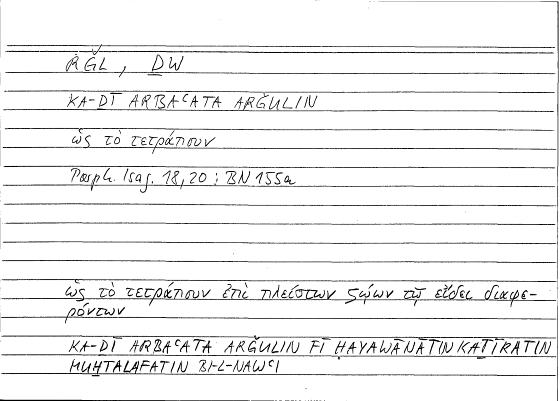 RǦL , ḎW
KA-ḎĪ ARBAʿATA ARǦULIN
ὡς τὸ τετράπουν
Porph. Isag. 18,20 ; BN 155a
ὡς τὸ τετράπουν ἐπὶ πλείστων ζῴων τῷ εἴδει διαφε-
ρόντων
KA-ḎĪ ARBAʿATA ARǦULIN FĪ ḤAYAWĀNĀTIN KAṮĪRATIN
MUḪTALAFATIN BI-L-NAWʿI